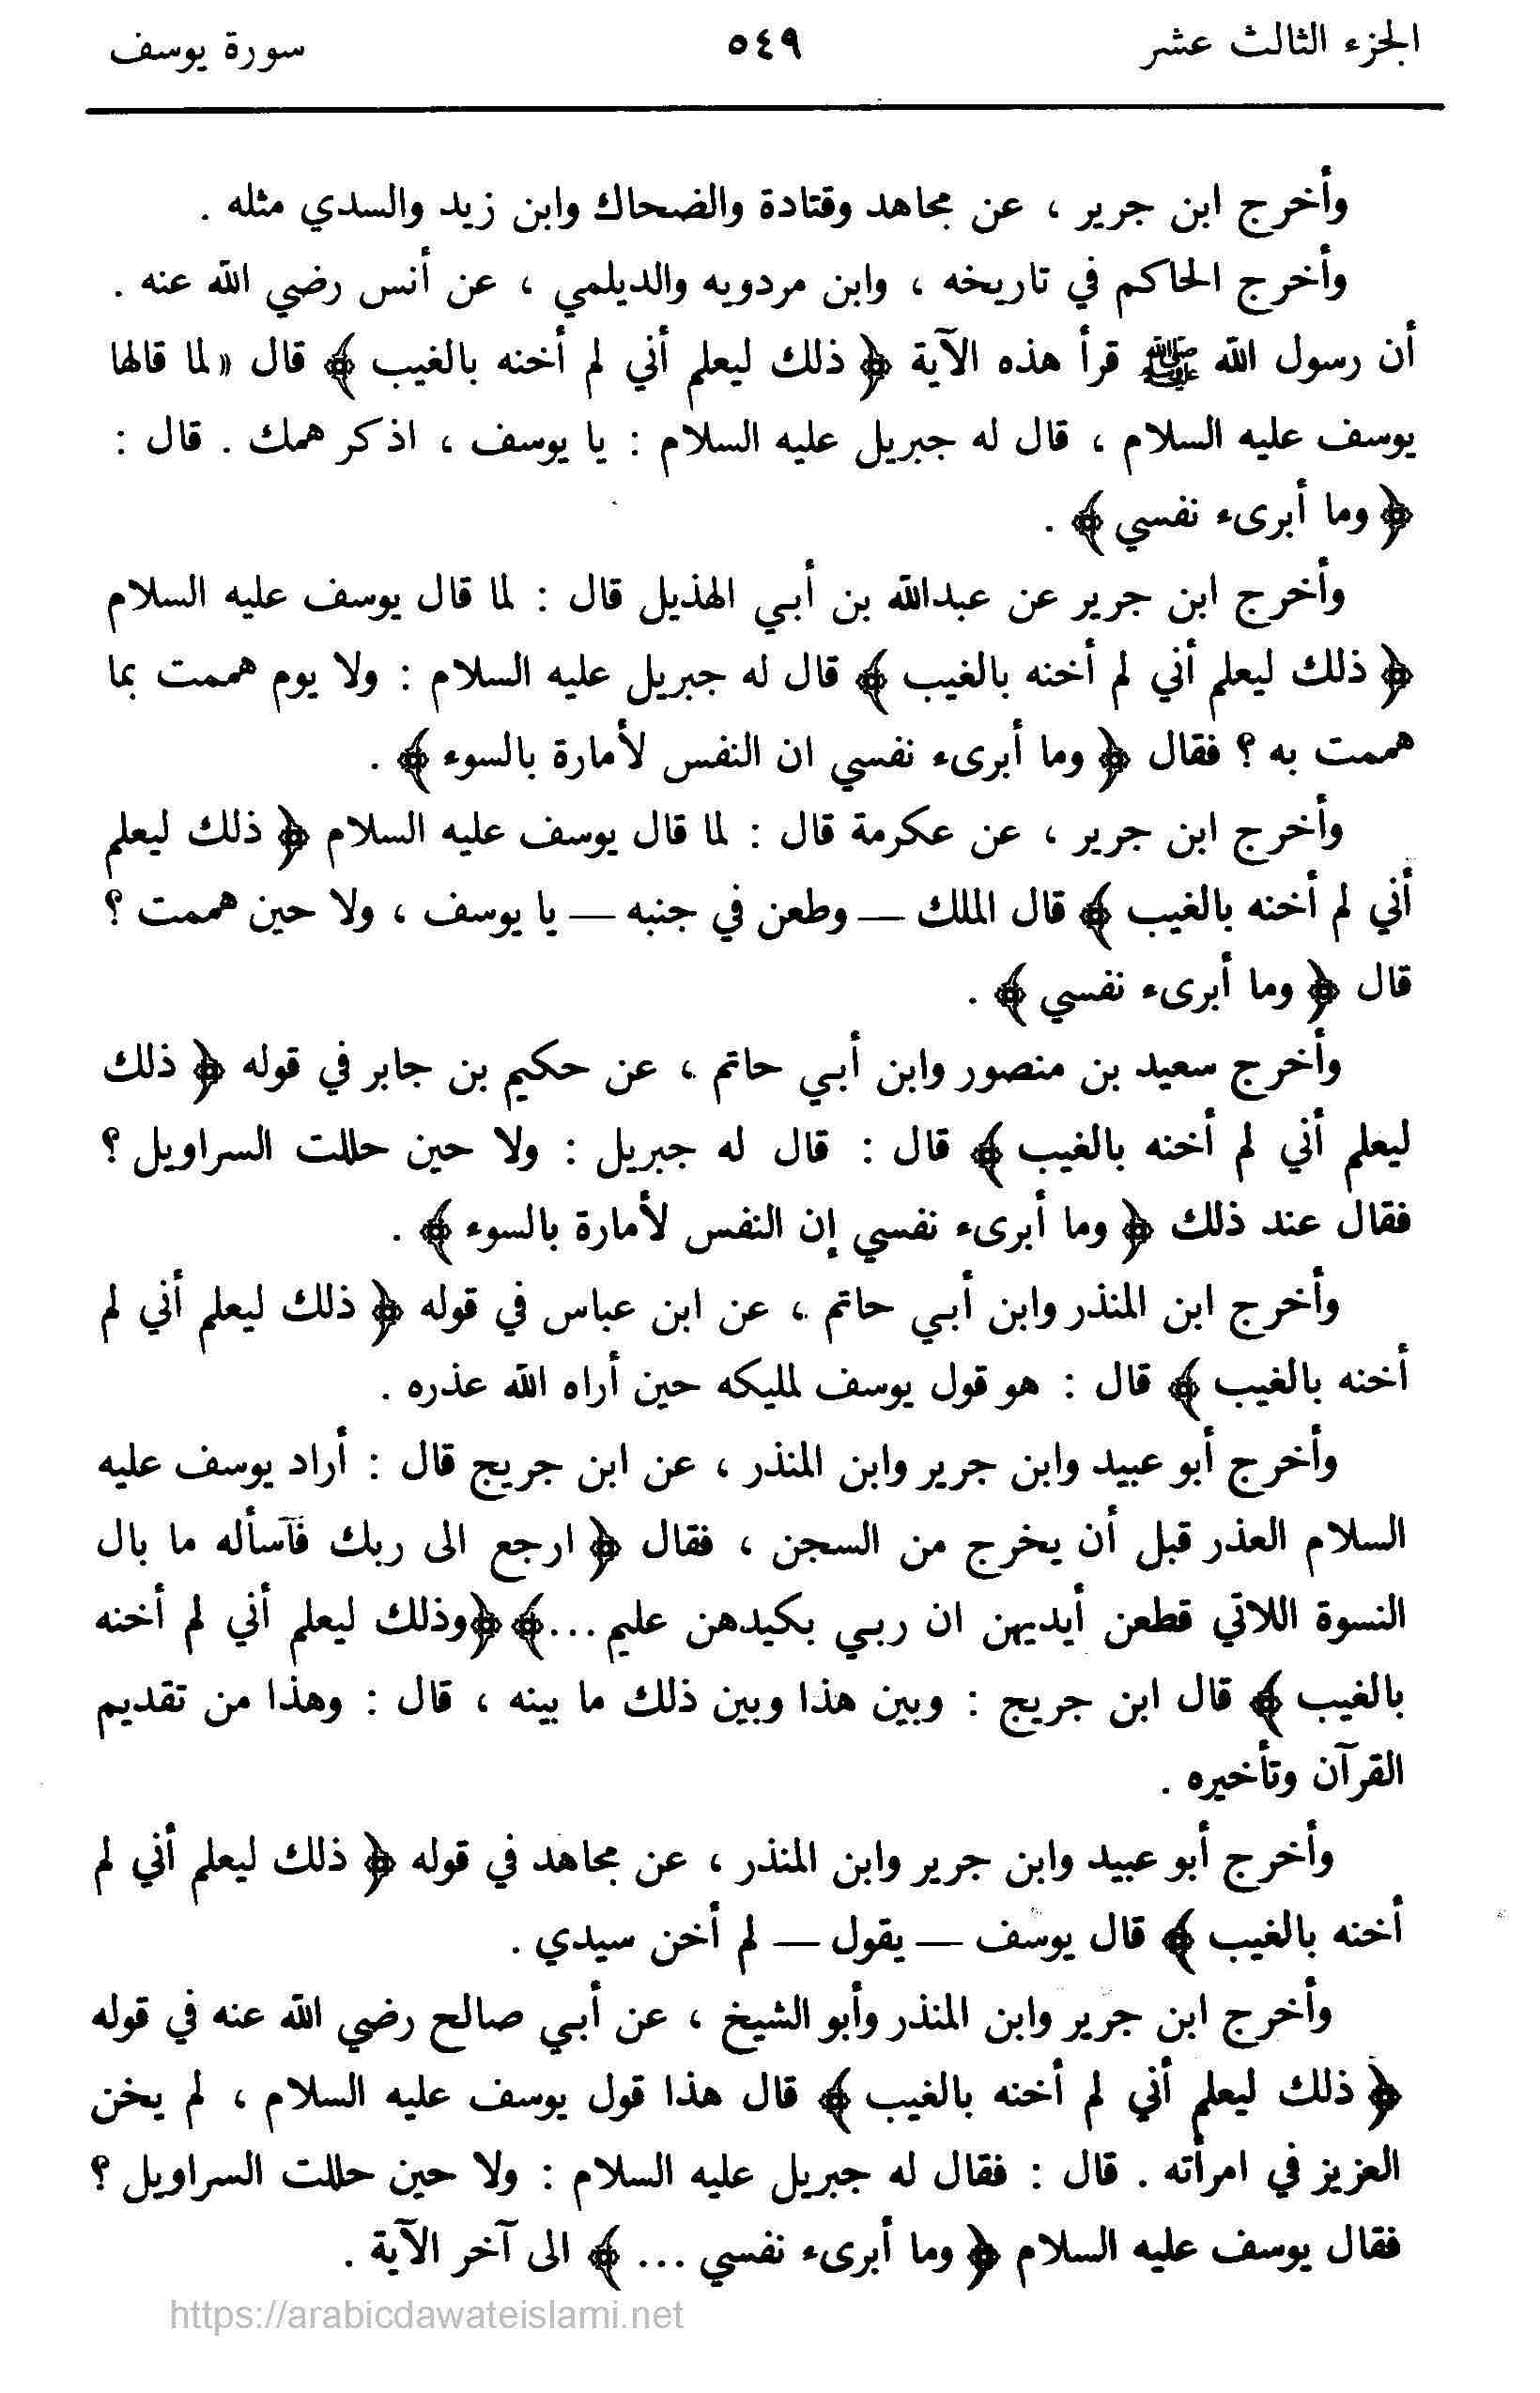 الجزء الثالث عشر ٥٤٩ سورة يوسف
وأخرج ابن جرير ، عن مجاهد وقتادة والضحاك وابن زيد والسدي مثله .
وأخرج الحاكم في تاريخه ، وابن مردويه والديلمي ، عن أنس رضي الله عنه .
أن رسول الله ﷺ قرأ هذه الآية ﴿ ذلك ليعلم أني لم أخنه بالغيب ﴾ قال « لما قالها
يوسف عليه السلام ، قال له جبريل عليه السلام : يا يوسف ، اذكر همك . قال :
﴿ وما أبرىء نفسي ﴾ .
وأخرج ابن جرير عن عبدالله بن أبي الهذيل قال : لما قال يوسف عليه السلام
﴿ ذلك ليعلم أني لم أخنه بالغيب ﴾ قال له جبريل عليه السلام : ولا يوم هممت بما
هممت به ؟ فقال ﴿ وما أبرىء نفسي ان النفس لأمارة بالسوء ﴾ .
وأخرج ابن جرير ، عن عكرمة قال : لما قال يوسف عليه السلام ﴿ ذلك ليعلم
أني لم أخنه بالغيب ﴾ قال الملك — وطعن في جنبه — يا يوسف ، ولا حين هممت ؟
قال ﴿ وما أبرىء نفسي ﴾ .
وأخرج سعيد بن منصور وابن أبي حاتم ، عن حكيم بن جابر في قوله ﴿ ذلك
ليعلم أني لم أخنه بالغيب ﴾ قال : قال له جبريل : ولا حين حللت السراويل ؟
فقال عند ذلك ﴿ وما أبرىء نفسي إن النفس لأمارة بالسوء ﴾ .
وأخرج ابن المنذر وابن أبي حاتم ، عن ابن عباس في قوله ﴿ ذلك ليعلم أني لم
أخنه بالغيب ﴾ قال : هو قول يوسف لمليكه حين أراه الله عذره .
وأخرج أبو عبيد وابن جرير وابن المنذر ، عن ابن جريج قال : أراد يوسف عليه
السلام العذر قبل أن يخرج من السجن ، فقال ﴿ ارجع الى ربك فآسأله ما بال
النسوة اللاتي قطعن أيديهن ان ربي بكيدهن عليم...﴾ ﴿وذلك ليعلم أني لم أخنه
بالغيب ﴾ قال ابن جريج : وبين هذا وبين ذلك ما بينه ، قال : وهذا من تقديم
القرآن وتأخيره .
وأخرج أبو عبيد وابن جرير وابن المنذر ، عن مجاهد في قوله ﴿ ذلك ليعلم أني لم
أخنه بالغيب ﴾ قال يوسف — يقول — لم أخن سيدي .
وأخرج ابن جرير وابن المنذر وأبو الشيخ ، عن أبي صالح رضي الله عنه في قوله
﴿ ذلك ليعلم أني لم أخنه بالغيب ﴾ قال هذا قول يوسف عليه السلام ، لم يخن
العزيز في امرأته . قال : فقال له جبريل عليه السلام : ولا حين حللت السراويل ؟
فقال يوسف عليه السلام ﴿ وما أبرىء نفسي ... ﴾ الى آخر الآية .
https://arabicdawateislami.net